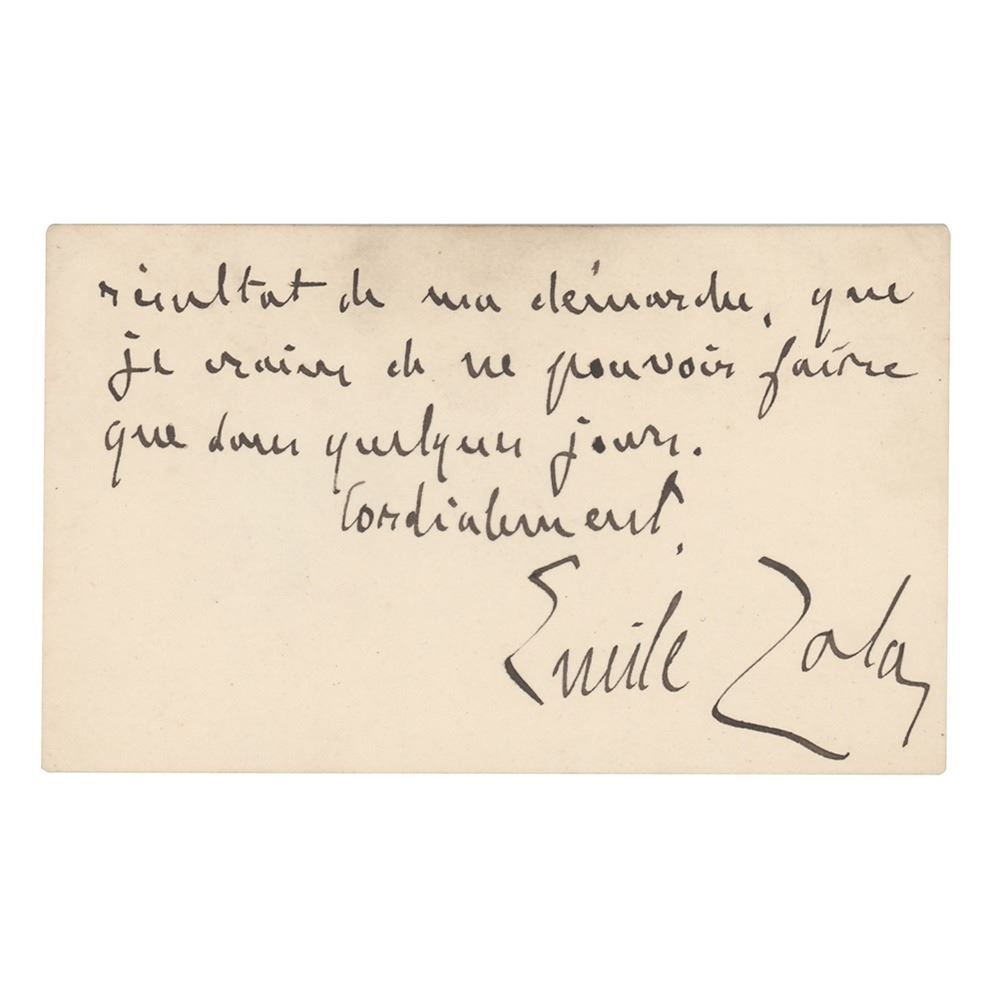 résultat de ma démarche, que
je crains de ne pouvoir faire
que dans quelques jours.
Cordialement,
Emile Zola